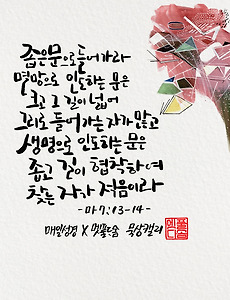 좁은문으로들어가라
멸망으로 인도하는 문은
크고 그 길이 넓어
그리로 들어가는 자가 많고
생명으로 인도하는 문은
좁고 길이 협착하여
찾는 자가 적음이라
- 마 7:13-14 -
매일성경 X 묵상캘리